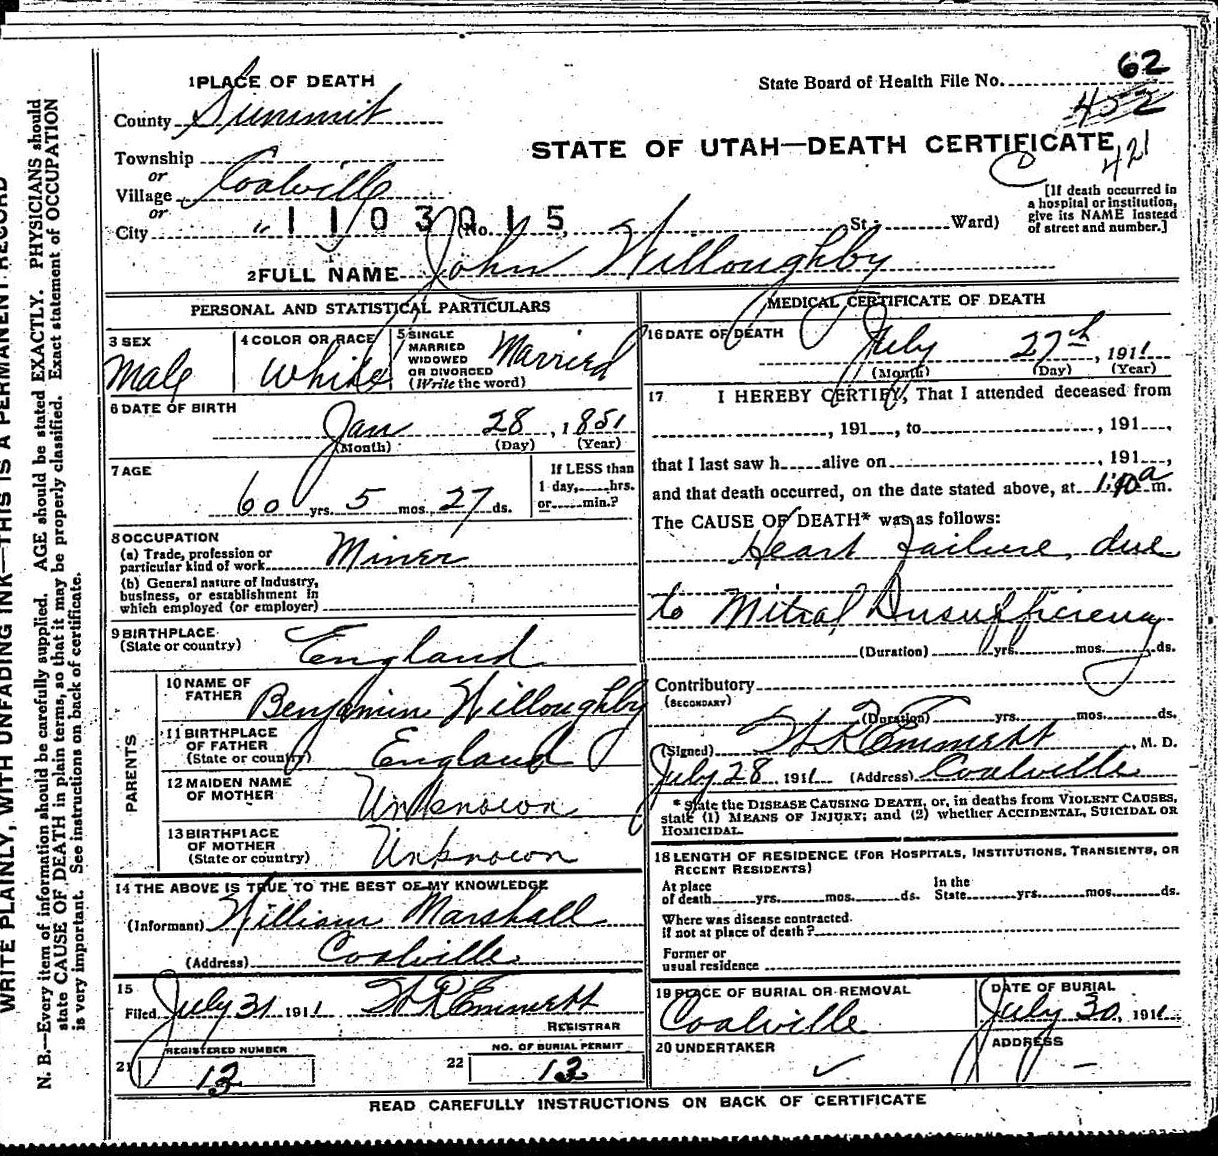 WRITE PLAINLY, WITH UNFADING INK—THIS IS A PERMANENT RECORD
N. B.—Every item of information should be carefully supplied. AGE should be stated EXACTLY. PHYSICIANS should
state CAUSE OF DEATH in plain terms, so that it may be properly classified. Exact statement of OCCUPATION
is very important. See instructions on back of certificate.
1 PLACE OF DEATH
County Summit
Township
or
Village Coalville
or
City " No. St.; Ward)
1103015
State Board of Health File No. 62
452
421
STATE OF UTAH—DEATH CERTIFICATE
C
[If death occurred in
a hospital or institution,
give its NAME instead
of street and number.]
2 FULL NAME John Willoughby
PERSONAL AND STATISTICAL PARTICULARS
3 SEX
Male
4 COLOR OR RACE
White
5 SINGLE
MARRIED
WIDOWED
OR DIVORCED
(Write the word)
Married
6 DATE OF BIRTH
Jan 28, 1851
(Month) (Day) (Year)
7 AGE
60 yrs. 5 mos. 27 ds.
If LESS than
1 day, hrs.
or min.?
8 OCCUPATION
(a) Trade, profession or
particular kind of work Miner
(b) General nature of industry,
business, or establishment in
which employed (or employer)
9 BIRTHPLACE
(State or country) England
PARENTS
10 NAME OF
FATHER Benjamin Willoughby
11 BIRTHPLACE
OF FATHER
(State or country) England
12 MAIDEN NAME
OF MOTHER Unknown
13 BIRTHPLACE
OF MOTHER
(State or country) Unknown
14 THE ABOVE IS TRUE TO THE BEST OF MY KNOWLEDGE
(Informant) William Marshall
(Address) Coalville
15
Filed July 31 1911 H R Emmett
REGISTRAR
21 REGISTERED NUMBER
13
22 NO. OF BURIAL PERMIT
13
MEDICAL CERTIFICATE OF DEATH
16 DATE OF DEATH
July 27th, 1911
(Month) (Day) (Year)
17 I HEREBY CERTIFY, That I attended deceased from
, 191 , to , 191 ,
that I last saw h alive on , 191 ,
and that death occurred, on the date stated above, at 1:40 a m.
The CAUSE OF DEATH* was as follows:
Heart Failure, due
to Mitral Insufficiency
(Duration) yrs. mos. ds.
Contributory
(SECONDARY)
(Duration) yrs. mos. ds.
(Signed) H R Emmett, M. D.
July 28 1911 (Address) Coalville
* State the DISEASE CAUSING DEATH, or, in deaths from VIOLENT CAUSES,
state (1) MEANS OF INJURY; and (2) whether ACCIDENTAL, SUICIDAL OR
HOMICIDAL.
18 LENGTH OF RESIDENCE (FOR HOSPITALS, INSTITUTIONS, TRANSIENTS, OR
RECENT RESIDENTS)
At place
of death yrs. mos. ds.
In the
State yrs. mos. ds.
Where was disease contracted.
if not at place of death?
Former or
usual residence
19 PLACE OF BURIAL OR REMOVAL
Coalville
DATE OF BURIAL
July 30, 1911
20 UNDERTAKER
ADDRESS
READ CAREFULLY INSTRUCTIONS ON BACK OF CERTIFICATE